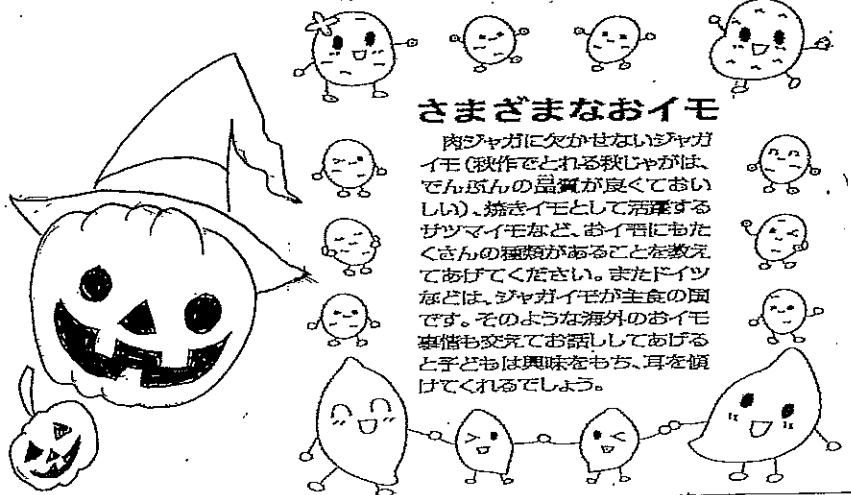 さまざまなおイモ
肉ジャガに欠かせないジャガ
イモ(秋作でとれる秋じゃがは、
でんぷんの品質が良くておい
しい)、焼きイモとして活躍する
サツマイモなど、おイモにもた
くさんの種類があることを教え
てあげてください。またドイツ
などは、ジャガイモが主食の国
です。そのような海外のおイモ
事情も交えてお話ししてあげる
と子どもは興味をもち、耳を傾
けてくれるでしょう。